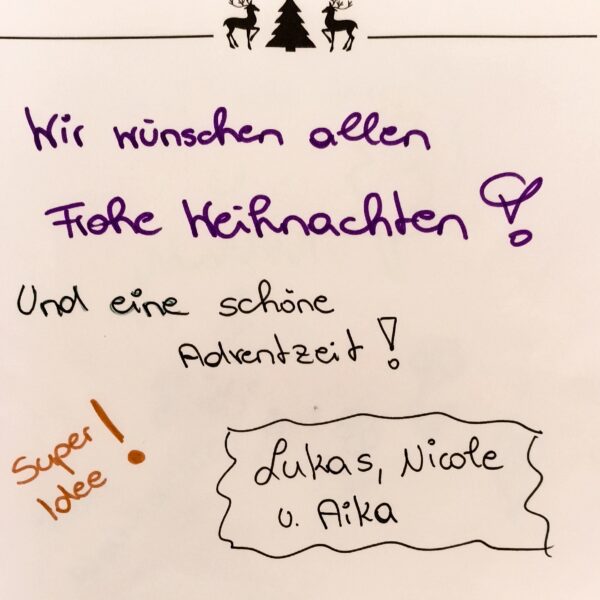 Wir wünschen allen
Frohe Weihnachten!
Und eine schöne
Adventzeit!
Super
Idee!
Lukas, Nicole
u. Aika